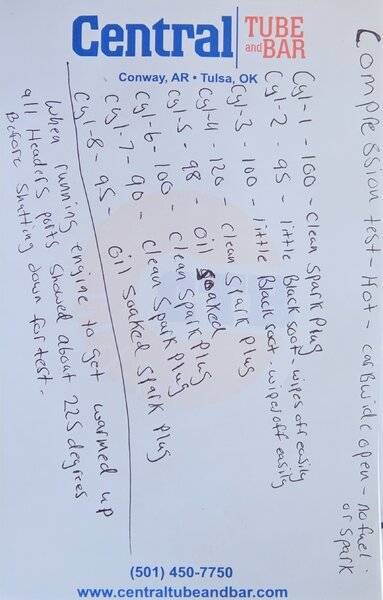 Central TUBE and BAR
Conway, AR • Tulsa, OK
Compression test - Hot - carb wide open - no fuel
or spark
Cyl-1 - 100 - clean spark plug
Cyl-2 - 95 - little Black soot - wipes off easily
Cyl-3 - 100 - little Black soot - wipes off easily
Cyl-4 - 120 - clean spark plug
Cyl-5 - 98 - oil soaked
Cyl-6 - 100 - clean spark plug
Cyl-7 - 90 - clean spark plug
Cyl-8 - 95 - oil soaked spark plug
When running engine to get warmed up
all Headers ports showed about 225 degrees
Before shutting down for test-
(501) 450-7750
www.centraltubeandbar.com